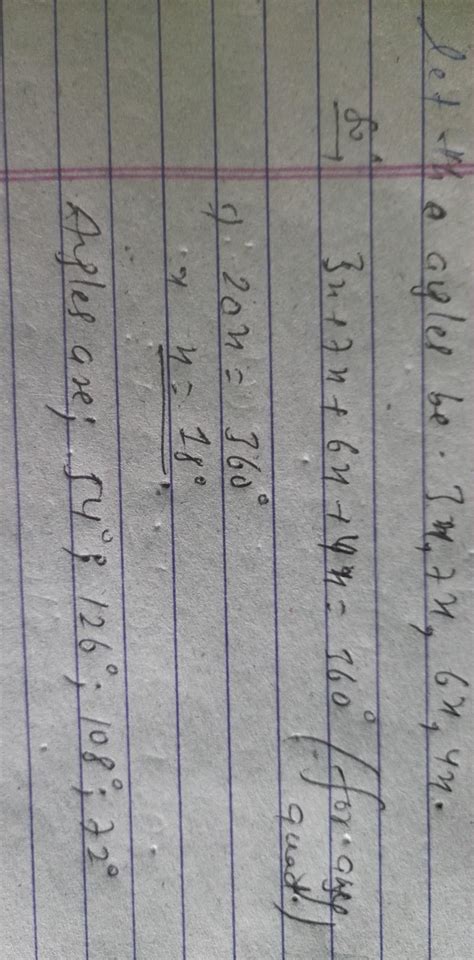 let the agles be. 3x, 7x, 6x, 4x.
3x+7x+6x+4x = 360° (for any quad.)
=). 20x = 360°
x = 18°
Agles are; 54°; 126°; 108°; 72°